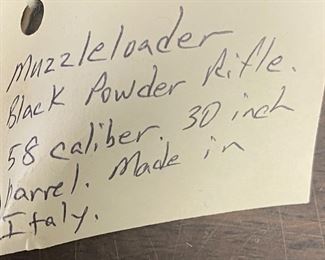 Muzzleloader
Black Powder Rifle.
58 caliber. 30 inch
barrel. Made in
Italy.